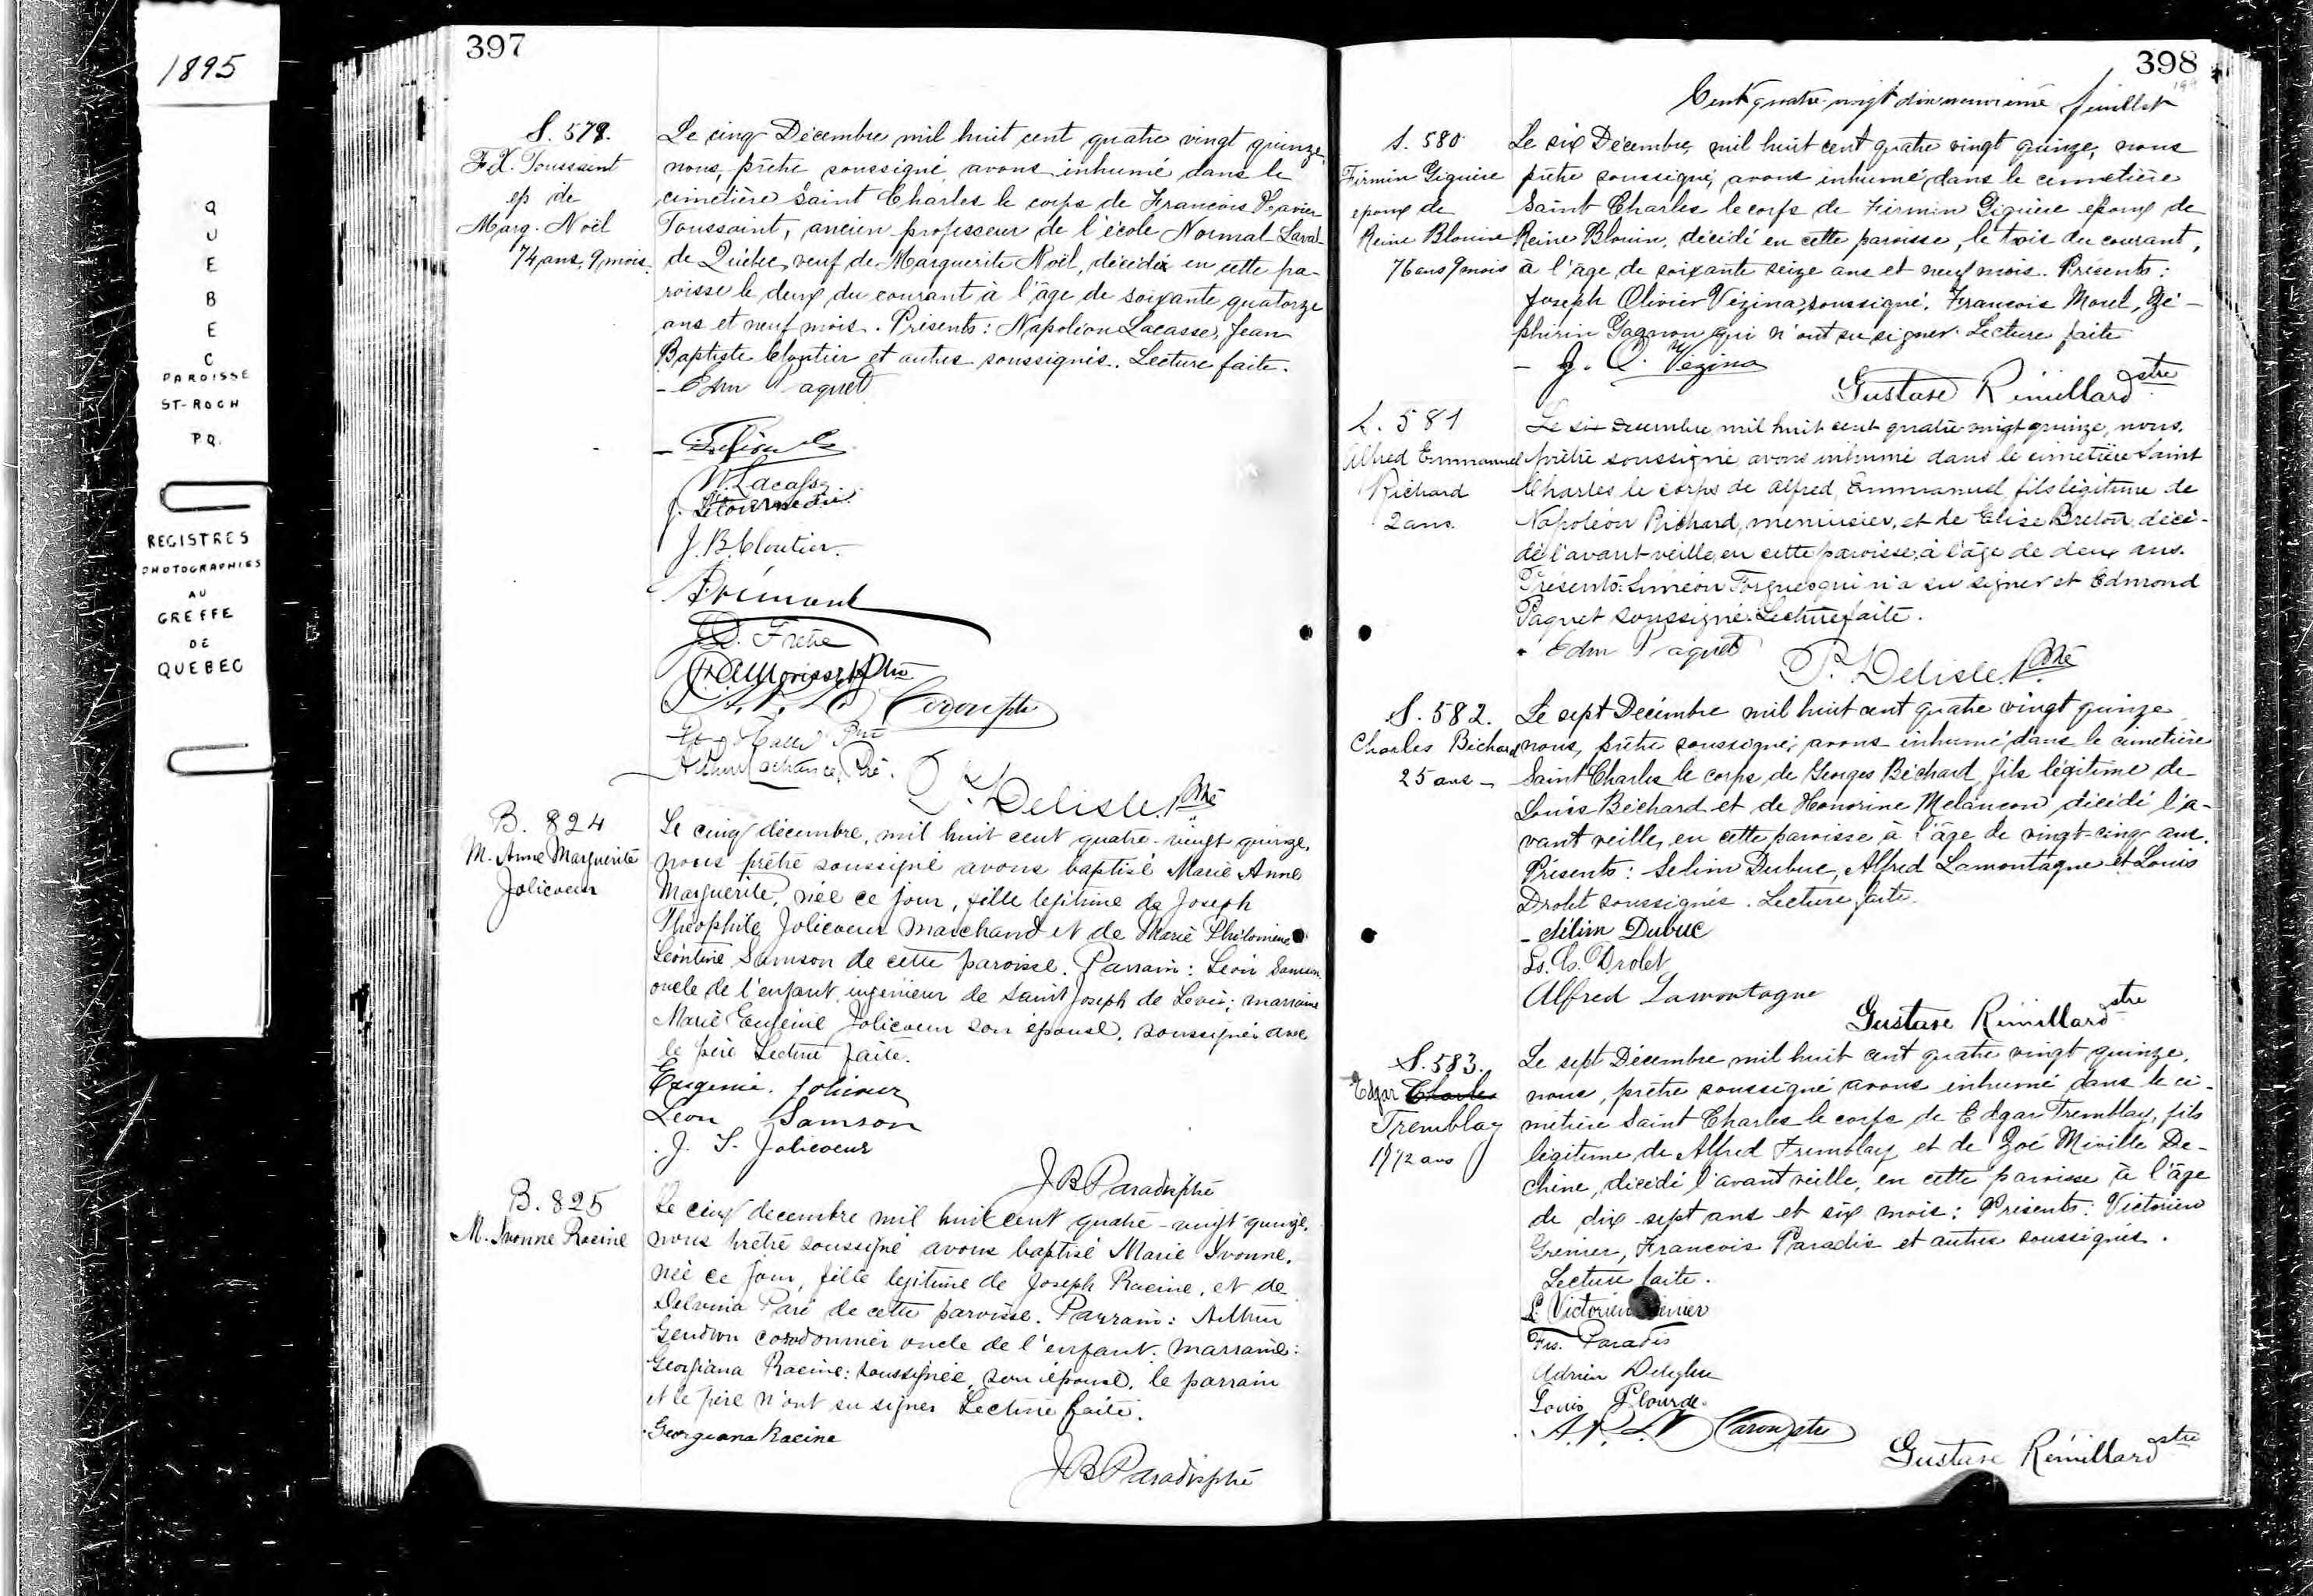 1895
Q
U
E
B
E
C
PAROISSE
ST-ROCH
P.Q.
REGISTRES
PHOTOGRAPHIES
AU
GREFFE
DE
QUEBEC
397
S. 579.
F.X. Toussaint
ep de
Marg. Noël
74 ans, 9 mois.
Le cinq Décembre mil huit cent quatre vingt quinze,
nous, prêtre soussigné, avons inhumé dans le
cimetière Saint Charles le corps de Francois Xavier
Toussaint, ancien professeur de l'école Normal Laval
de Québec, veuf de Marguerite Noël, décédé en cette pa-
roisse le deux du courant à l'âge de soixante quatorze
ans et neuf mois. Présents: Napoléon Lacasse, Jean
Baptiste Cloutier et autres soussignés. Lecture faite.
- Edm Paquet
N. Lacasse
J. Létourneau
J. B. Cloutier.
J.D. Frève
P. Delisle Ptre
B. 824
M. Anne Marguerite
Jolicoeur
Le cinq décembre, mil huit cent quatre-vingt quinze,
nous prêtre soussigné avons baptisé Marie Anne
Marguerite, née ce jour, fille légitime de Joseph
Théophile Jolicoeur marchand et de Marie Philomène
Léontine Samson de cette paroisse. Parrain: Léon Samson
oncle de l'enfant, ingénieur de Saint Joseph de Levis; marraine
Marie Eugénie Jolicoeur son épouse, soussignés avec
le père Lecture faite.
Eugenie. Jolicoeur
Léon Samson
J. T. Jolicoeur
J B Paradis ptre
B. 825
M. Ivonne Racine
Le cinq decembre mil huit cent quatre-vingt-quinze,
nous prêtre soussigné avons baptisé Marie Ivonne,
née ce jour, fille légitime de Joseph Racine, et de
Delvina Paré de cette paroisse. Parrain: Arthur
Gendron cordonnier oncle de l'enfant. marraine:
Georgiana Racine: soussignée, son épouse, le parrain
et le père n'ont su signer Lecture faite.
Georgiana Racine
J B Paradis ptre
398
199
Cent quatre vingt dix neuvième feuillet
S. 580
Firmin Giguère
epoux de
Reine Blouin
76 ans 9 mois
Le six Décembre, mil huit cent quatre vingt quinze, nous
prêtre soussigné, avons inhumé dans le cimetière
Saint Charles le corps de Firmin Giguère epoux de
Reine Blouin, décédé en cette paroisse, le trois du courant,
à l'âge de soixante seize ans et neuf mois. Présents:
Joseph Olivier Vézina, soussigné, Francois Morel, Zé-
phirin Gagnon qui n'ont su signer. Lecture faite
- J. O. Vézina
Gustave Rémillard Ptre
S. 581
Alfred Emmanuel
Richard
2 ans.
Le six decembre, mil huit cent quatre vingt quinze, nous,
prêtre soussigné avons inhumé dans le cimetière Saint
Charles le corps de Alfred, Emmanuel, fils légitime de
Napoléon Richard, menuisier, et de Elise Breton, décé-
dé l'avant-veille, en cette paroisse, à l'âge de deux ans.
Présents: Siméon Forgues qui n'a su signer et Edmond
Paquet soussigné. Lecture faite.
Edm Paquet
P. Delisle Ptre
S. 582.
Charles Béchard
25 ans -
Le sept Décembre mil huit cent quatre vingt quinze
nous, prêtre soussigné, avons inhumé dans le cimetière
Saint Charles le corps de Georges Béchard, fils légitime de
Louis Béchard et de Honorine Melancon, décédé l'a-
vant veille, en cette paroisse à l'âge de vingt-cinq ans.
Présents: Selim Dubuc, Alfred Lamontagne et Louis
Drolet soussignés. Lecture faite.
- Sélim Dubuc
Ls. Cs. Drolet
Alfred Lamontagne
Gustave Rémillard Ptre
S. 583.
Edgar Charles
Tremblay
17 1/2 ans
Le sept Décembre mil huit cent quatre vingt quinze,
nous, prêtre soussigné avons inhumé dans le ci-
metière Saint Charles le corps de Edgar Tremblay, fils
légitime de Alfred Tremblay et de Zoé Miville De-
chène, décédé l'avant veille, en cette paroisse à l'âge
de dix-sept ans et six mois: Présents: Victorien
Grenier, Francois Paradis et autres soussignés.
Lecture faite.
L. Victorien Grenier
Frs. Paradis
Adrien
Louis Plourde
Gustave Rémillard Ptre